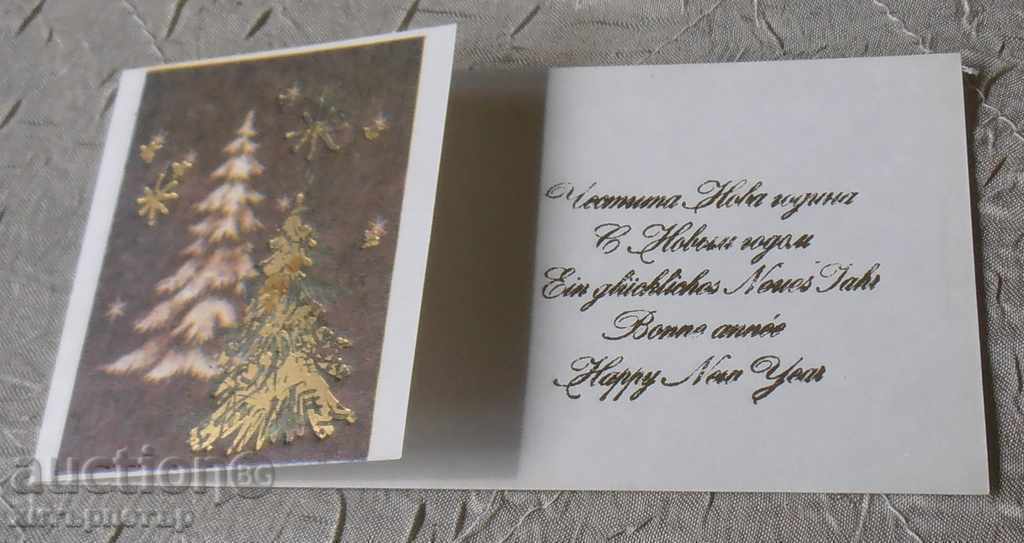 Честита Нова година
С Новым годом
Ein glückliches Neues Jahr
Bonne année
Happy New Year
auction BG
хитърпетър